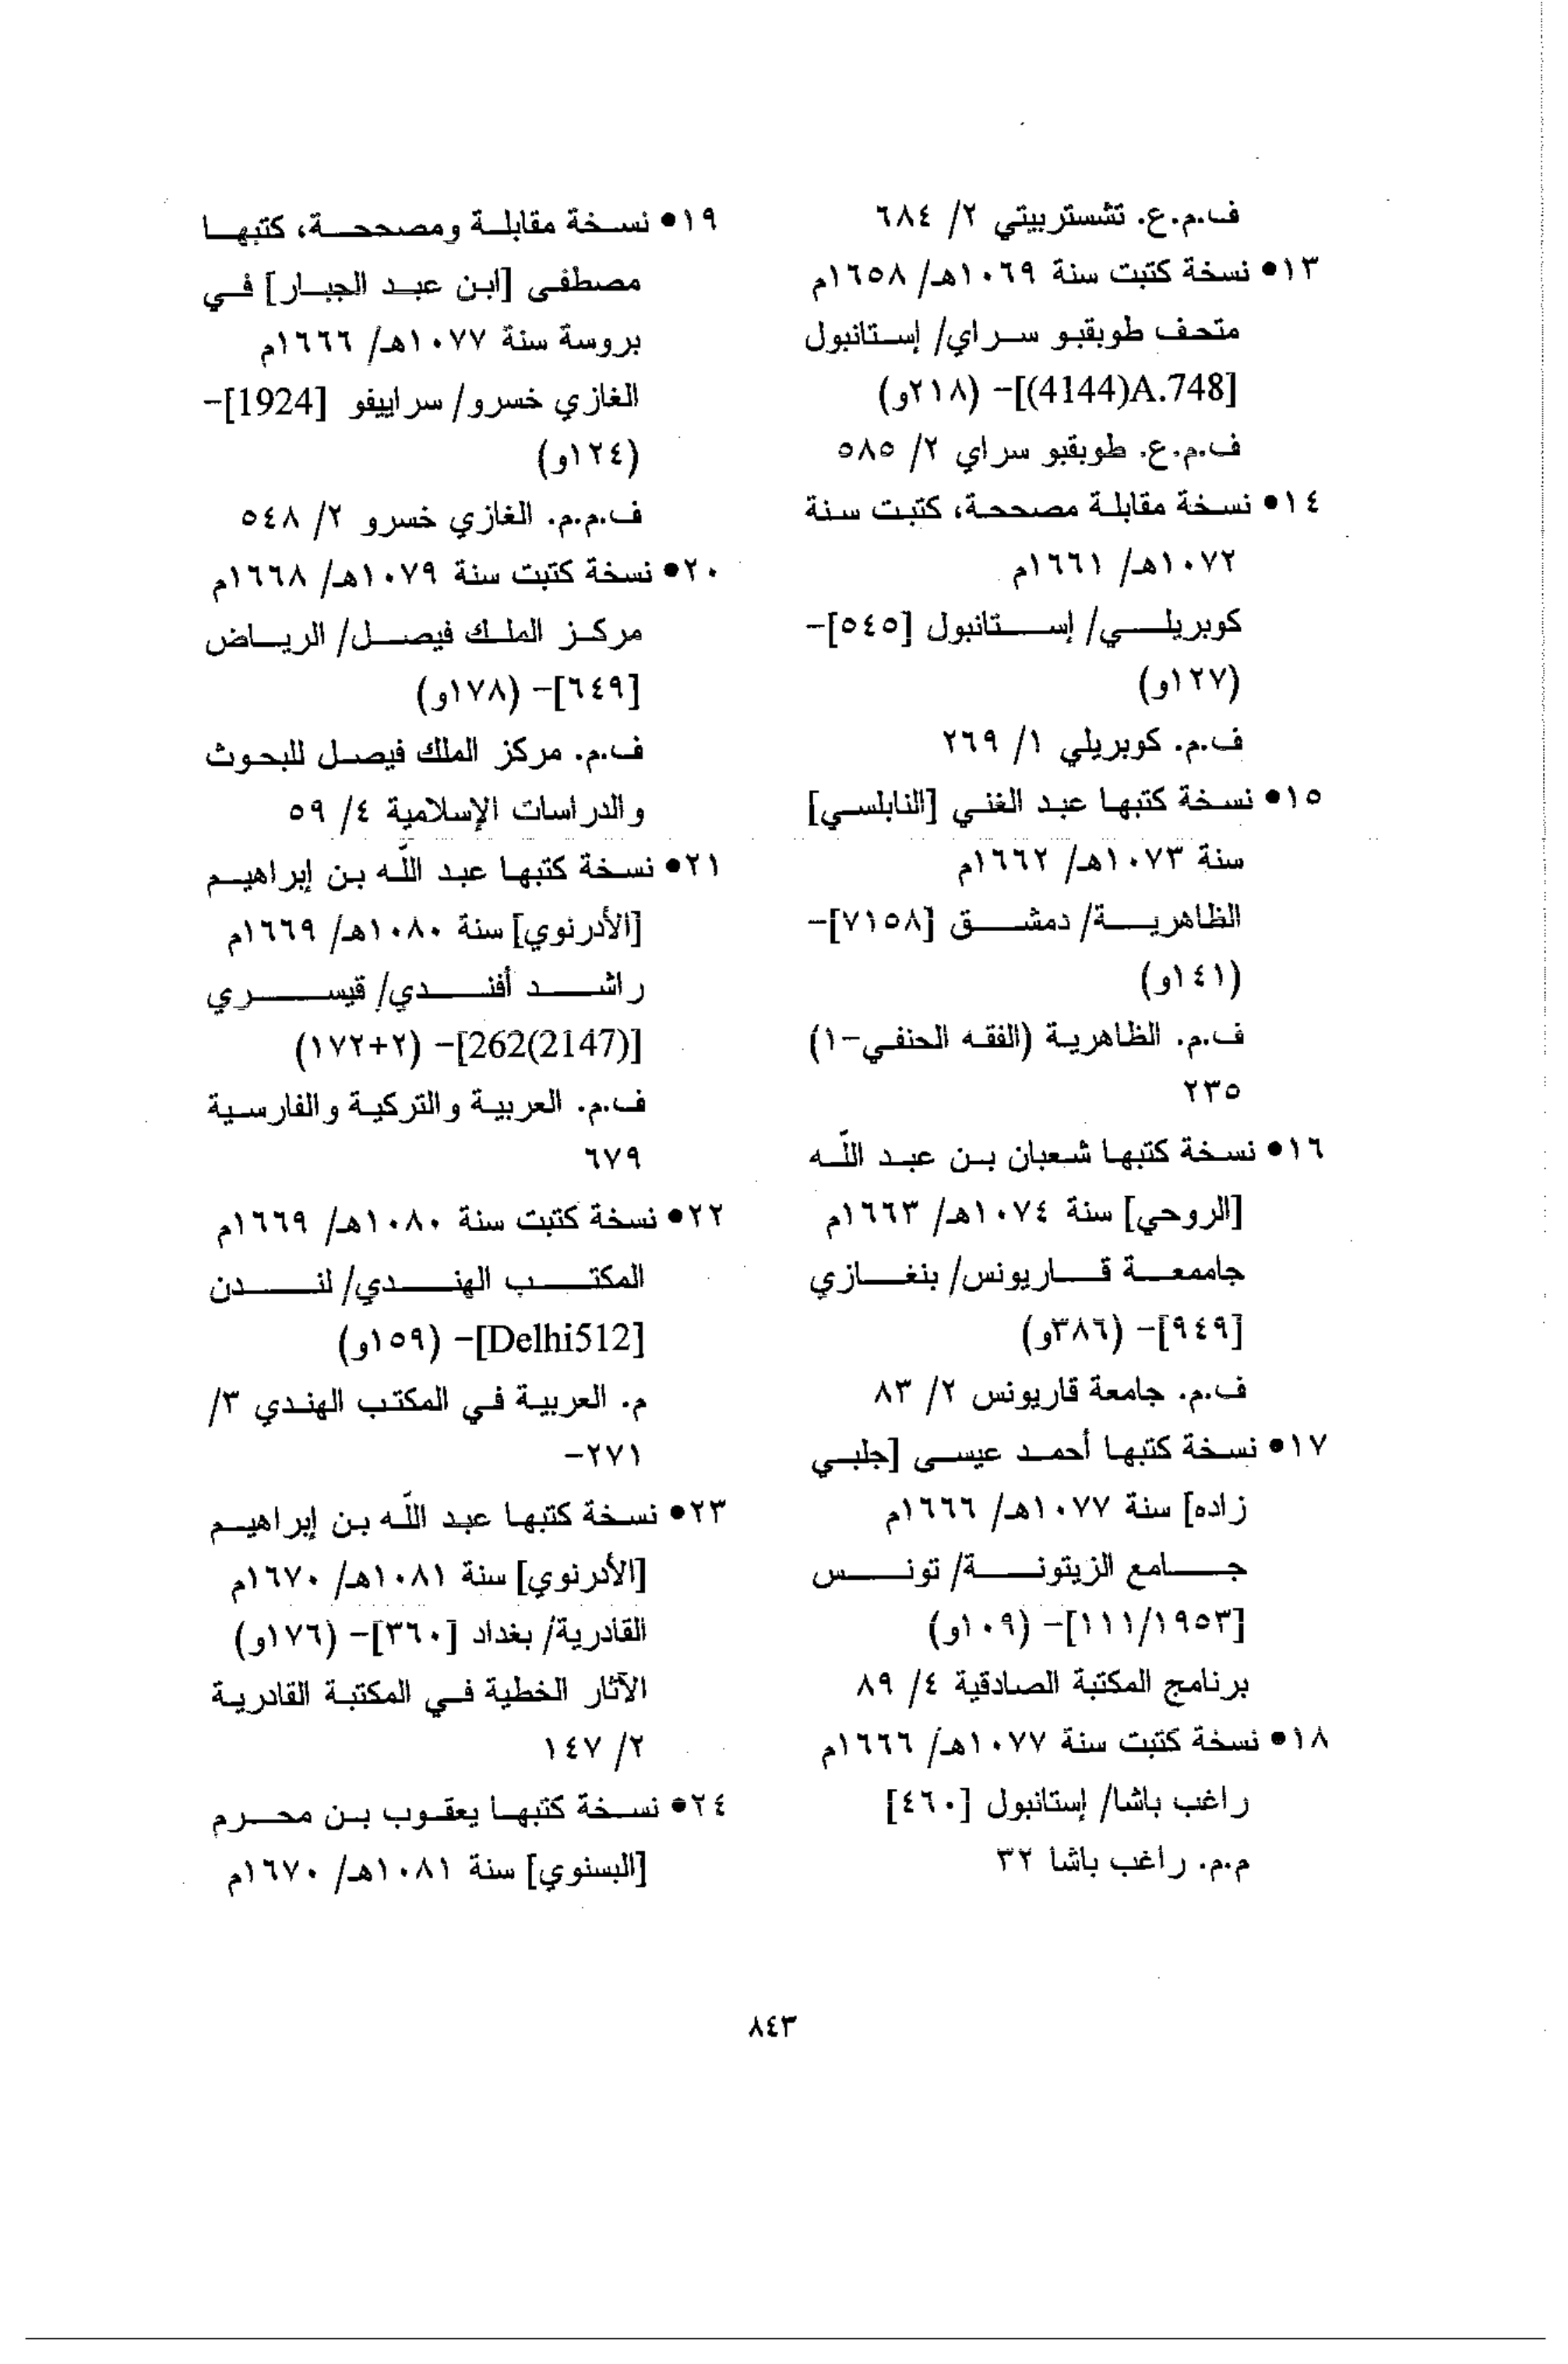 ف.م.ع. تشستربيتي ٢/ ٦٨٤
١٣• نسخة كتبت سنة ١٠٦٩هـ/ ١٦٥٨م
متحف طوبقبو سراي/ إستانبول
[A.748(4144)]- (٢١٨و)
ف.م.ع. طوبقبو سراي ٢/ ٥٨٥
١٤• نسخة مقابلة مصححة، كتبت سنة
١٠٧٢هـ/ ١٦٦١م
كوبريلي/ إستانبول [٥٤٥]-
(١٢٧و)
ف.م. كوبريلي ١/ ٢٦٩
١٥• نسخة كتبها عبد الغني [النابلسي]
سنة ١٠٧٣هـ/ ١٦٦٢م
الظاهرية/ دمشق [٧١٥٨]-
(١٤١و)
ف.م. الظاهرية (الفقه الحنفي-١)
٢٣٥
١٦• نسخة كتبها شعبان بن عبد اللّه
[الروحي] سنة ١٠٧٤هـ/ ١٦٦٣م
جاممعة قاريونس/ بنغازي
[٩٤٩]- (٣٨٦و)
ف.م. جامعة قاريونس ٢/ ٨٣
١٧• نسخة كتبها أحمد عيسى [جلبي
زاده] سنة ١٠٧٧هـ/ ١٦٦٦م
جامع الزيتونة/ تونس
[١١١/١٩٥٣]- (١٠٩و)
برنامج المكتبة الصادقية ٤/ ٨٩
١٨• نسخة كتبت سنة ١٠٧٧هـ/ ١٦٦٦م
راغب باشا/ إستانبول [٤٦٠]
م.م. راغب باشا ٣٢
١٩• نسخة مقابلة ومصححة، كتبها
مصطفى [ابن عبد الجبار] في
بروسة سنة ١٠٧٧هـ/ ١٦٦٦م
الغازي خسرو/ سراييفو [1924]-
(١٢٤و)
ف.م.م. الغازي خسرو ٢/ ٥٤٨
٢٠• نسخة كتبت سنة ١٠٧٩هـ/ ١٦٦٨م
مركز الملك فيصل/ الرياض
[٦٤٩]- (١٧٨و)
ف.م. مركز الملك فيصل للبحوث
والدراسات الإسلامية ٤/ ٥٩
٢١• نسخة كتبها عبد اللّه بن إبراهيم
[الأدرنوي] سنة ١٠٨٠هـ/ ١٦٦٩م
راشد أفندي/ قيسري
[262(2147)]- (٢+١٧٢)
ف.م. العربية والتركية والفارسية
٦٧٩
٢٢• نسخة كتبت سنة ١٠٨٠هـ/ ١٦٦٩م
المكتب الهندي/ لندن
[Delhi512]- (١٥٩و)
م. العربية في المكتب الهندي ٣/
٢٧١-
٢٣• نسخة كتبها عبد اللّه بن إبراهيم
[الأدرنوي] سنة ١٠٨١هـ/ ١٦٧٠م
القادرية/ بغداد [٣٦٠]- (١٧٦و)
الآثار الخطية في المكتبة القادرية
٢/ ١٤٧
٢٤• نسخة كتبها يعقوب بن محرم
[البسنوي] سنة ١٠٨١هـ/ ١٦٧٠م
٨٤٣